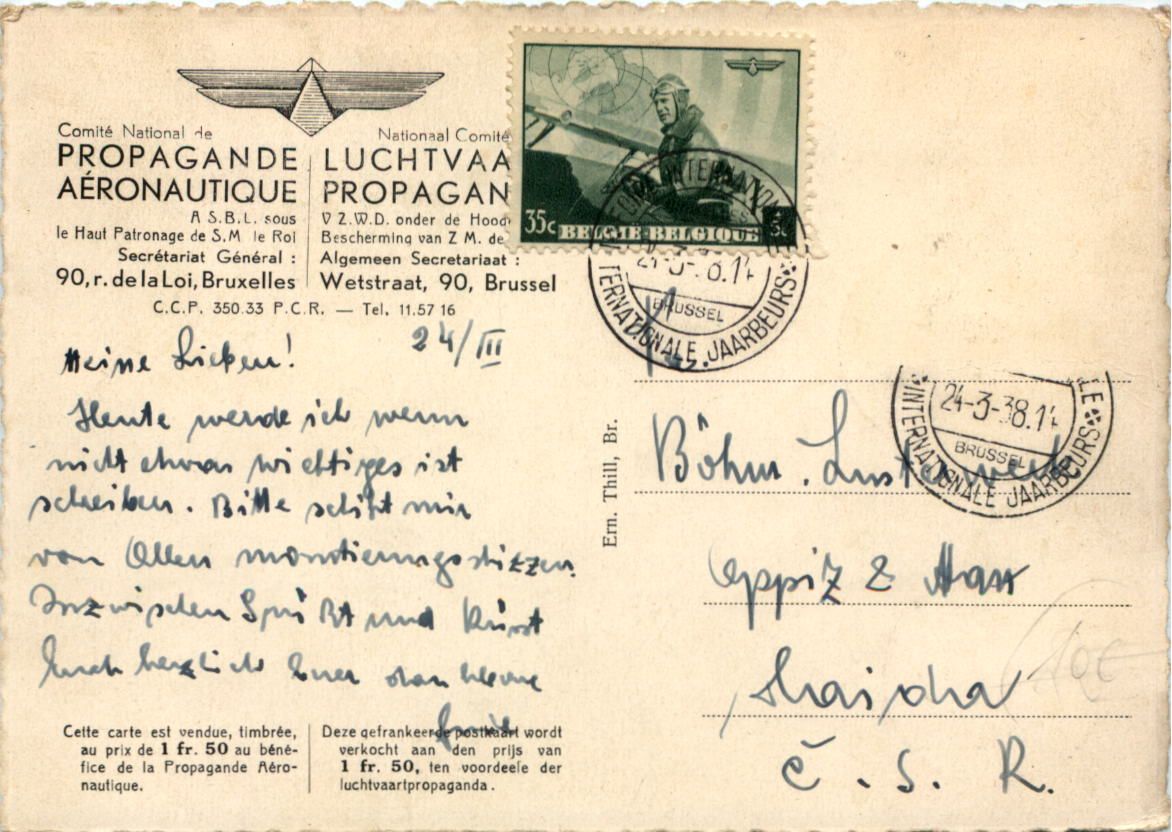 Comité National de
PROPAGANDE
AÉRONAUTIQUE
A S.B.L. sous
le Haut Patronage de S.M. le Roi
Secrétariat Général :
90, r. de la Loi, Bruxelles
Nationaal Comité
LUCHTVAA
PROPAGAN
V Z.W.D. onder de Hoog
Bescherming van Z M. de
Algemeen Secretariaat :
Wetstraat, 90, Brussel
C.C.P. 350.33 P.C.R. — Tel. 11.57 16
35c BELGIE-BELGIQUE
24-3-38.14
BRUSSEL
INTERNATIONALE JAARBEURS
24-3-38.14
BRUSSEL
INTERNATIONALE JAARBEURS
24/III
Meine Lieben!
Heute werde ich wenn
nicht etwas wichtiges ist
schreiben. Bitte schikt mir
von Allen montierungsskizzen.
Inzwischen Grüßt und Küsst
Euch herzlich Euer
Ern. Thill, Br.
Fa.
Böhm. Lusterwerk
Oppiz & Haas
Haida
Č. S. R.
10€
Cette carte est vendue, timbrée,
au prix de 1 fr. 50 au béné-
fice de la Propagande Aéro-
nautique.
Deze gefrankeerde postkaart wordt
verkocht aan den prijs van
1 fr. 50, ten voordeele der
luchtvaartpropaganda.